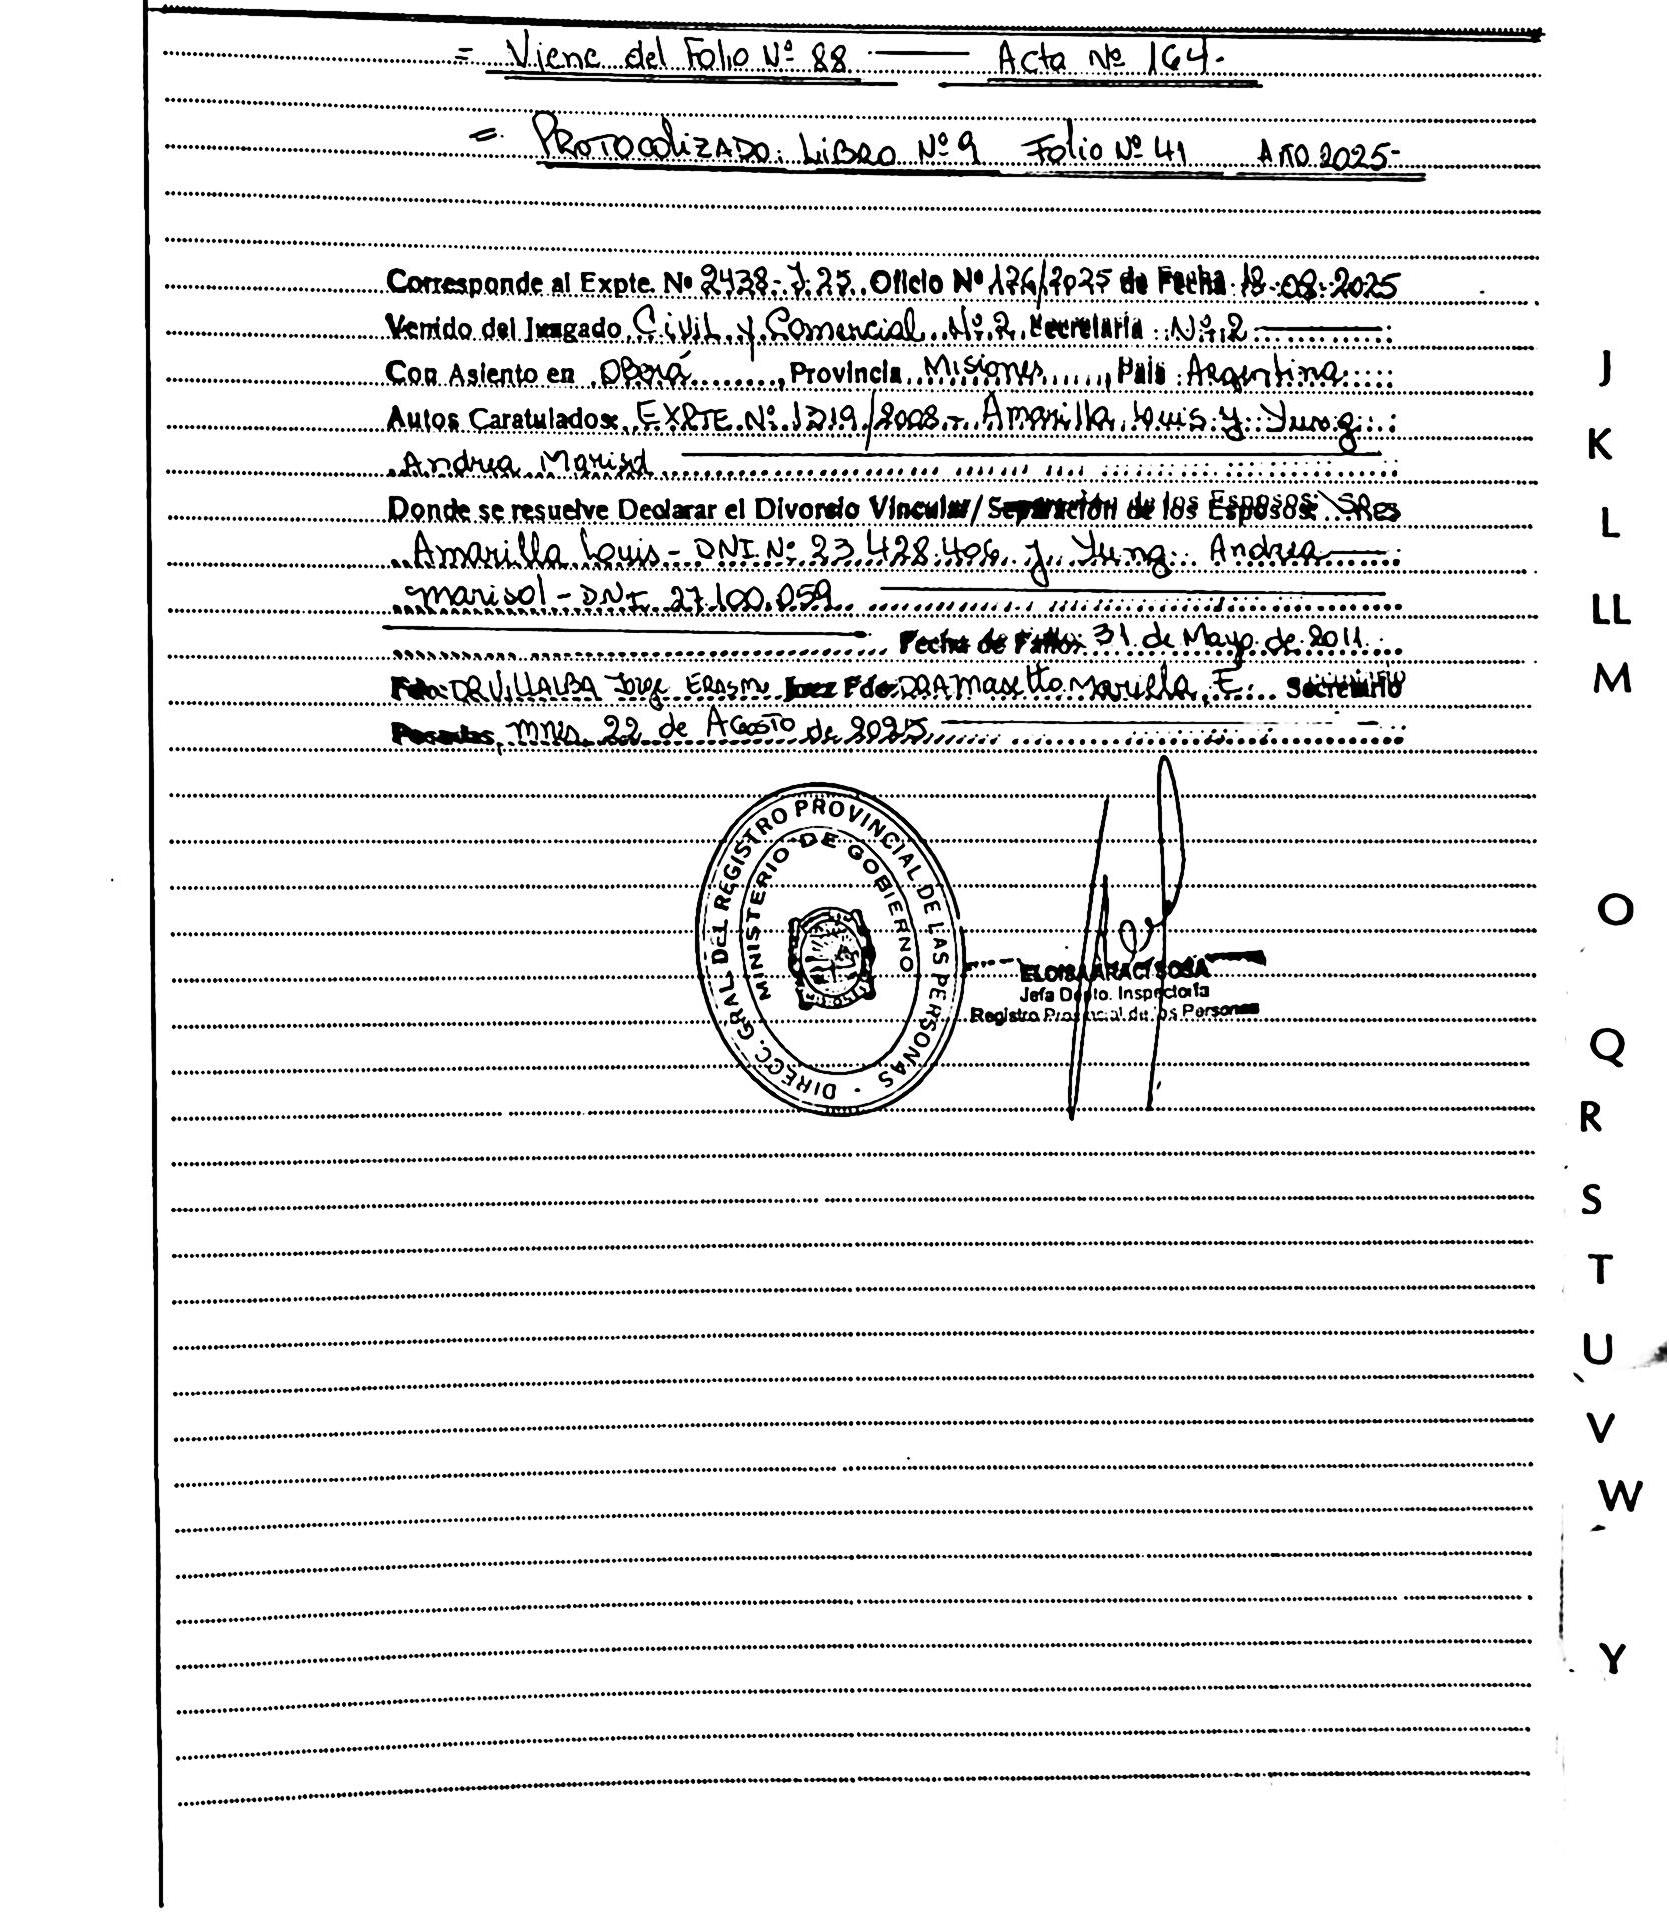 = Viene del Folio Nº 88 —— Acta Nº 164.-
= PROTOCOLIZADO: LIBRO Nº 9 Folio Nº 41 AÑO 2025-
Corresponde al Expte. Nº 2438-J-25. Oficio Nº 176/2025 de Fecha 18-08-2025
Venido del Juzgado Civil y Comercial Nº 2 Secretaria Nº 2
Con Asiento en Oberá, Provincia Misiones, Pais Argentina
Autos Caratulados: EXPTE Nº 1219/2008 - Amarilla Louis y Yung
Andrea Marisol
Donde se resuelve Declarar el Divorcio Vincular/Separación de los Esposos: SRes
Amarilla Louis - DNI Nº 23.428.406 y Yung Andrea
Marisol - DNI 27.100.059
Fecha de Fallo: 31 de Mayo de 2011
Fdo: DR VILLALBA Jorge ERASMO Juez Fdo: DRA Masetto Mariela, E. Secretario
Posadas, Mnes, 22 de AGOSTO de 2025
DIRECC. GRAL. DEL REGISTRO PROVINCIAL DE LAS PERSONAS
MINISTERIO DE GOBIERNO
ELOISA ARACI SOSA
Jefa Depto. Inspectoria
Registro Provincial de las Personas
J
K
L
LL
M
O
Q
R
S
T
U
V
W
Y